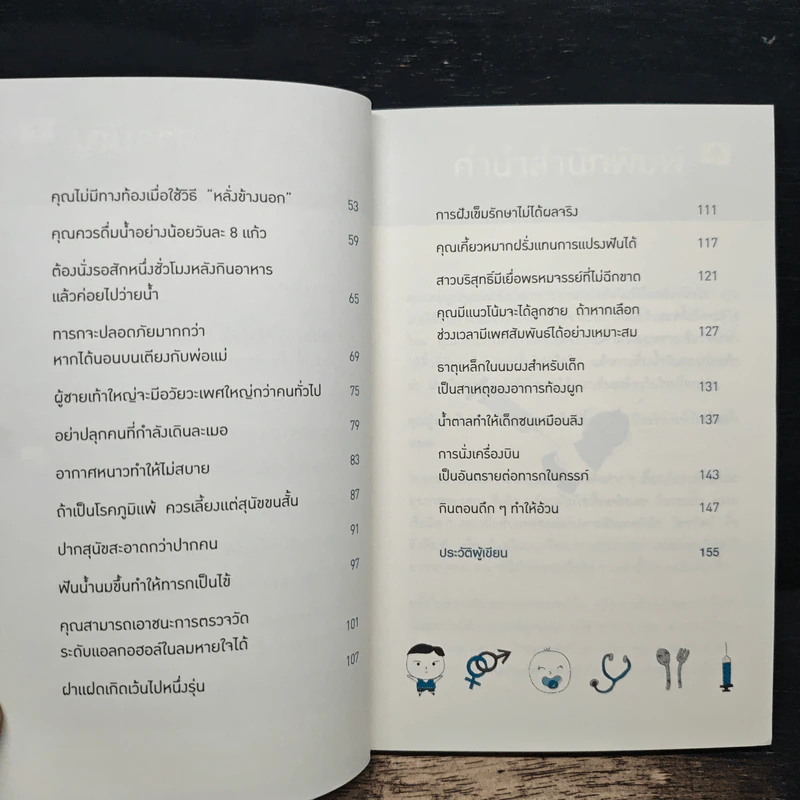 คุณไม่มีทางท้องเมื่อใช้วิธี “หลั่งข้างนอก” 53
คุณควรดื่มน้ำอย่างน้อยวันละ 8 แก้ว 59
ต้องนั่งรอสักหนึ่งชั่วโมงหลังกินอาหาร
แล้วค่อยไปว่ายน้ำ 65
ทารกจะปลอดภัยมากกว่า
หากได้นอนบนเตียงกับพ่อแม่ 69
ผู้ชายเท้าใหญ่จะมีอวัยวะเพศใหญ่กว่าคนทั่วไป 75
อย่าปลุกคนที่กำลังเดินละเมอ 79
อากาศหนาวทำให้ไม่สบาย 83
ถ้าเป็นโรคภูมิแพ้ ควรเลี้ยงแต่สุนัขขนสั้น 87
ปากสุนัขสะอาดกว่าปากคน 91
ฟันน้ำนมขึ้นทำให้ทารกเป็นไข้ 97
คุณสามารถเอาชนะการตรวจวัด
ระดับแอลกอฮอล์ในลมหายใจได้ 101
ฝาแฝดเกิดเว้นไปหนึ่งรุ่น 107
การฝังเข็มรักษาไม่ได้ผลจริง 111
คุณเคี้ยวหมากฝรั่งแทนการแปรงฟันได้ 117
สาวบริสุทธิ์มีเยื่อพรหมจรรย์ที่ไม่ฉีกขาด 121
คุณมีแนวโน้มจะได้ลูกชาย ถ้าหากเลือก
ช่วงเวลามีเพศสัมพันธ์ได้อย่างเหมาะสม 127
ธาตุเหล็กในนมผงสำหรับเด็ก
เป็นสาเหตุของอาการท้องผูก 131
น้ำตาลทำให้เด็กซนเหมือนลิง 137
การนั่งเครื่องบิน
เป็นอันตรายต่อทารกในครรภ์ 143
กินตอนดึก ๆ ทำให้อ้วน 147
ประวัติผู้เขียน 155